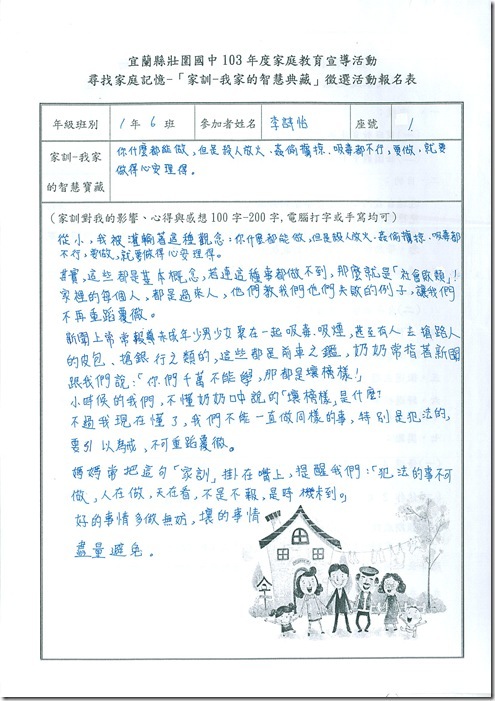 宜蘭縣壯圍國中 103 年度家庭教育宣導活動
尋找家庭記憶-「家訓-我家的智慧典藏」徵選活動報名表
年級班別 1 年 6 班 參加者姓名 李詩怡 座號 1
家訓-我家的智慧寶藏
你什麼都能做,但是殺人放火、姦偷擄掠、吸毒都不行,要做,就要
做得心安理得。
(家訓對我的影響、心得與感想 100 字-200 字,電腦打字或手寫均可)
從小,我被灌輸著這種觀念:你什麼都能做,但是殺人放火、姦偷擄掠、吸毒都
不行,要做,就要做得心安理得。
其實,這些都是基本概念,若連這種事都做不到,那麼就是「社會敗類」!
家裡的每個人,都是過來人,他們教我們他們失敗的例子,讓我們
不再重蹈覆徹。
新聞上常常報導未成年少男少女聚在一起吸毒、吸煙,甚至有人去搶路人
的皮包、搶銀行之類的,這些都是前車之鑑,奶奶常指著新聞
跟我們說:「你們千萬不能學,那都是壞榜樣!」
小時候的我們,不懂奶奶口中說的「壞榜樣」是什麼?
不過我現在懂了,我們不能一直做同樣的事,特別是犯法的,
要引以為戒,不可重蹈覆徹。
媽媽常把這句「家訓」掛在嘴上,提醒我們:「犯法的事不可
做,人在做,天在看,不是不報,是時機未到。」
好的事情多做無妨,壞的事情
盡量避免。